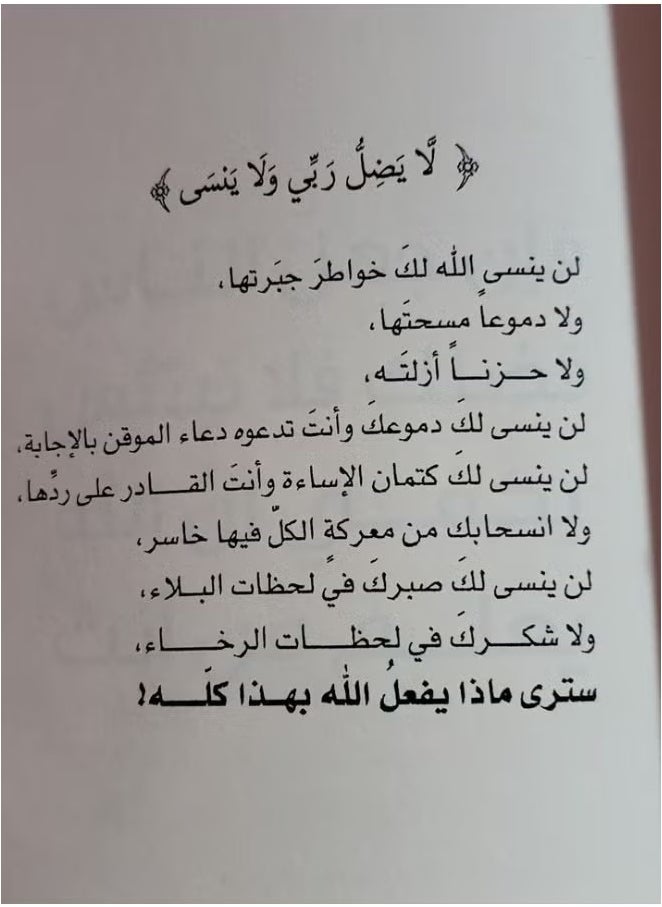 ﴿ لَّا يَضِلُّ رَبِّي وَلَا يَنسَى ﴾
لن ينسى الله لكَ خواطرَ جبَرتها،
ولا دموعاً مسحتَها،
ولا حـــزنــــاً أزلتَـــه،
لن ينسى لكَ دموعكَ وأنتَ تدعوه دعاء الموقن بالإجابة،
لن ينسى لكَ كتمان الإساءة وأنتَ القـــــادر على ردِّها،
ولا انسحابك من معركةٍ الكلّ فيها خاسر،
لن ينسى لكَ صبركَ في لحظات البـــلاء،
ولا شكـــــركَ في لحظـــــات الرخـــــاء،
سترى ماذا يفعلُ الله بهـــذا كلّـــــه!